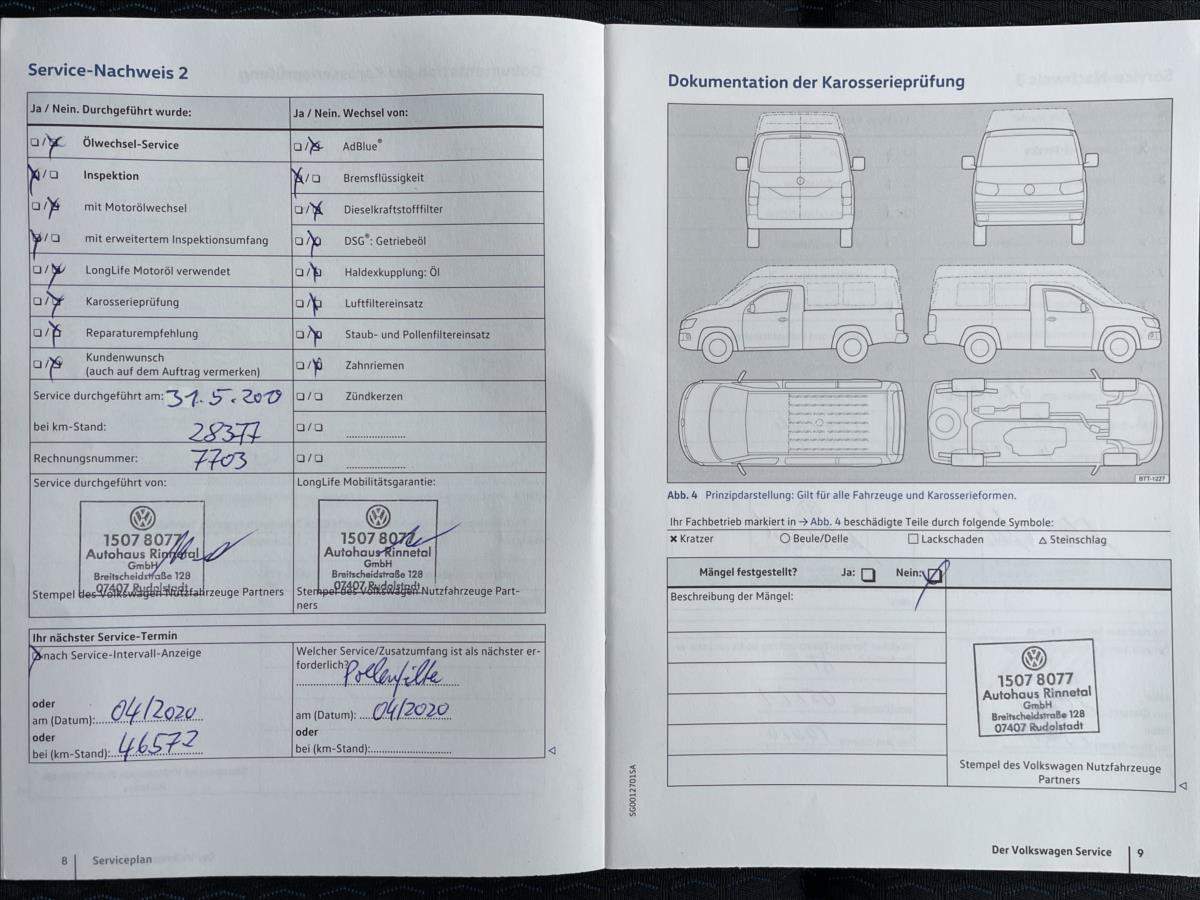 Service-Nachweis 2
Ja / Nein. Durchgeführt wurde:
Ölwechsel-Service
Inspektion
mit Motorölwechsel
mit erweitertem Inspektionsumfang
LongLife Motoröl verwendet
Karosserieprüfung
Reparaturempfehlung
Kundenwunsch
(auch auf dem Auftrag vermerken)
Service durchgeführt am: 31.5.2019
bei km-Stand: 28377
Rechnungsnummer: 7703
Service durchgeführt von:
1507 8077
Autohaus Rinnetal
GmbH
Breitscheidstraße 128
07407 Rudolstadt
Stempel des Volkswagen Nutzfahrzeuge Partners
Ja / Nein. Wechsel von:
AdBlue®
Bremsflüssigkeit
Dieselkraftstofffilter
DSG®: Getriebeöl
Haldexkupplung: Öl
Luftfiltereinsatz
Staub- und Pollenfiltereinsatz
Zahnriemen
Zündkerzen
LongLife Mobilitätsgarantie:
1507 8077
Autohaus Rinnetal
GmbH
Breitscheidstraße 128
07407 Rudolstadt
Stempel des Volkswagen Nutzfahrzeuge Part-
ners
Ihr nächster Service-Termin
nach Service-Intervall-Anzeige
oder
am (Datum): 04/2020
oder
bei (km-Stand): 46572
Welcher Service/Zusatzumfang ist als nächster er-
forderlich? Pollenfilte
am (Datum): 04/2020
oder
bei (km-Stand):
8 Serviceplan
Dokumentation der Karosserieprüfung
BTT-1227
Abb. 4 Prinzipdarstellung: Gilt für alle Fahrzeuge und Karosserieformen.
Ihr Fachbetrieb markiert in → Abb. 4 beschädigte Teile durch folgende Symbole:
Kratzer
Beule/Delle
Lackschaden
Steinschlag
Mängel festgestellt? Ja: Nein:
Beschreibung der Mängel:
1507 8077
Autohaus Rinnetal
GmbH
Breitscheidstraße 128
07407 Rudolstadt
Stempel des Volkswagen Nutzfahrzeuge
Partners
SG0012701SA
Der Volkswagen Service 9